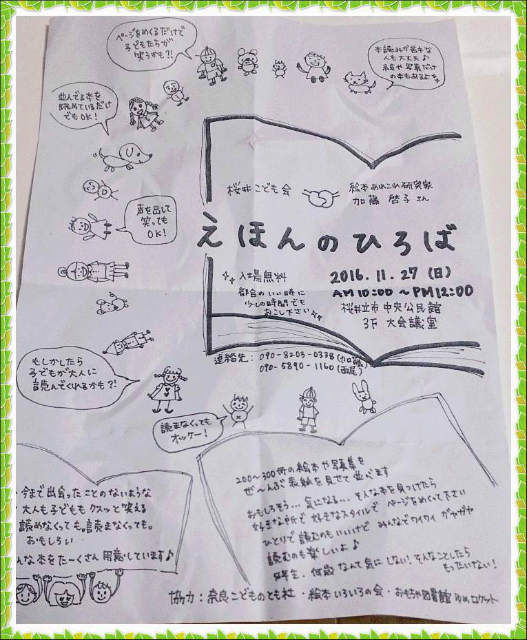 ページをめくるだけで
子どもたちが
笑うかも?!
本読みが苦手な
人も大丈夫♪
並んでる本を
眺めているだけ
でもOK!
声を出して
笑っても
OK!
桜井こども会
加藤 啓子 さん
えほんのひろば
入場無料
都合のいい時に
少しの時間でも
おこし下さい
2016.11.27(日)
AM10:00~PM12:00
桜井市中央公民館
3F 大会議室
連絡先:090-8203-0338
090-5890-1160
もしかしたら
子どもが大人に
読んでくれるかも?!
読まなくても
オッケー!
200~300冊の絵本や写真集を
ぜ~んぶ表紙を見せて並べます
おもしろそう…気になる…そんな本を見つけたら
好きな場所で好きなスタイルでページをめくって下さい
ひとりで読むのもいいけど みんなでワイワイ ガヤガヤ
読むのも楽しいよ♪
何歳なんて気にしない!そんなことしたら
もったいない!
今まで出会ったことのないような
大人も子どももクスッと笑える
読めなくても。読まなくても。
おもしろい
んな本をた~くさん用意しています♪
協力:奈良こどものとも社・絵本いろいろの会・おもちゃ図書館ゆめロケット